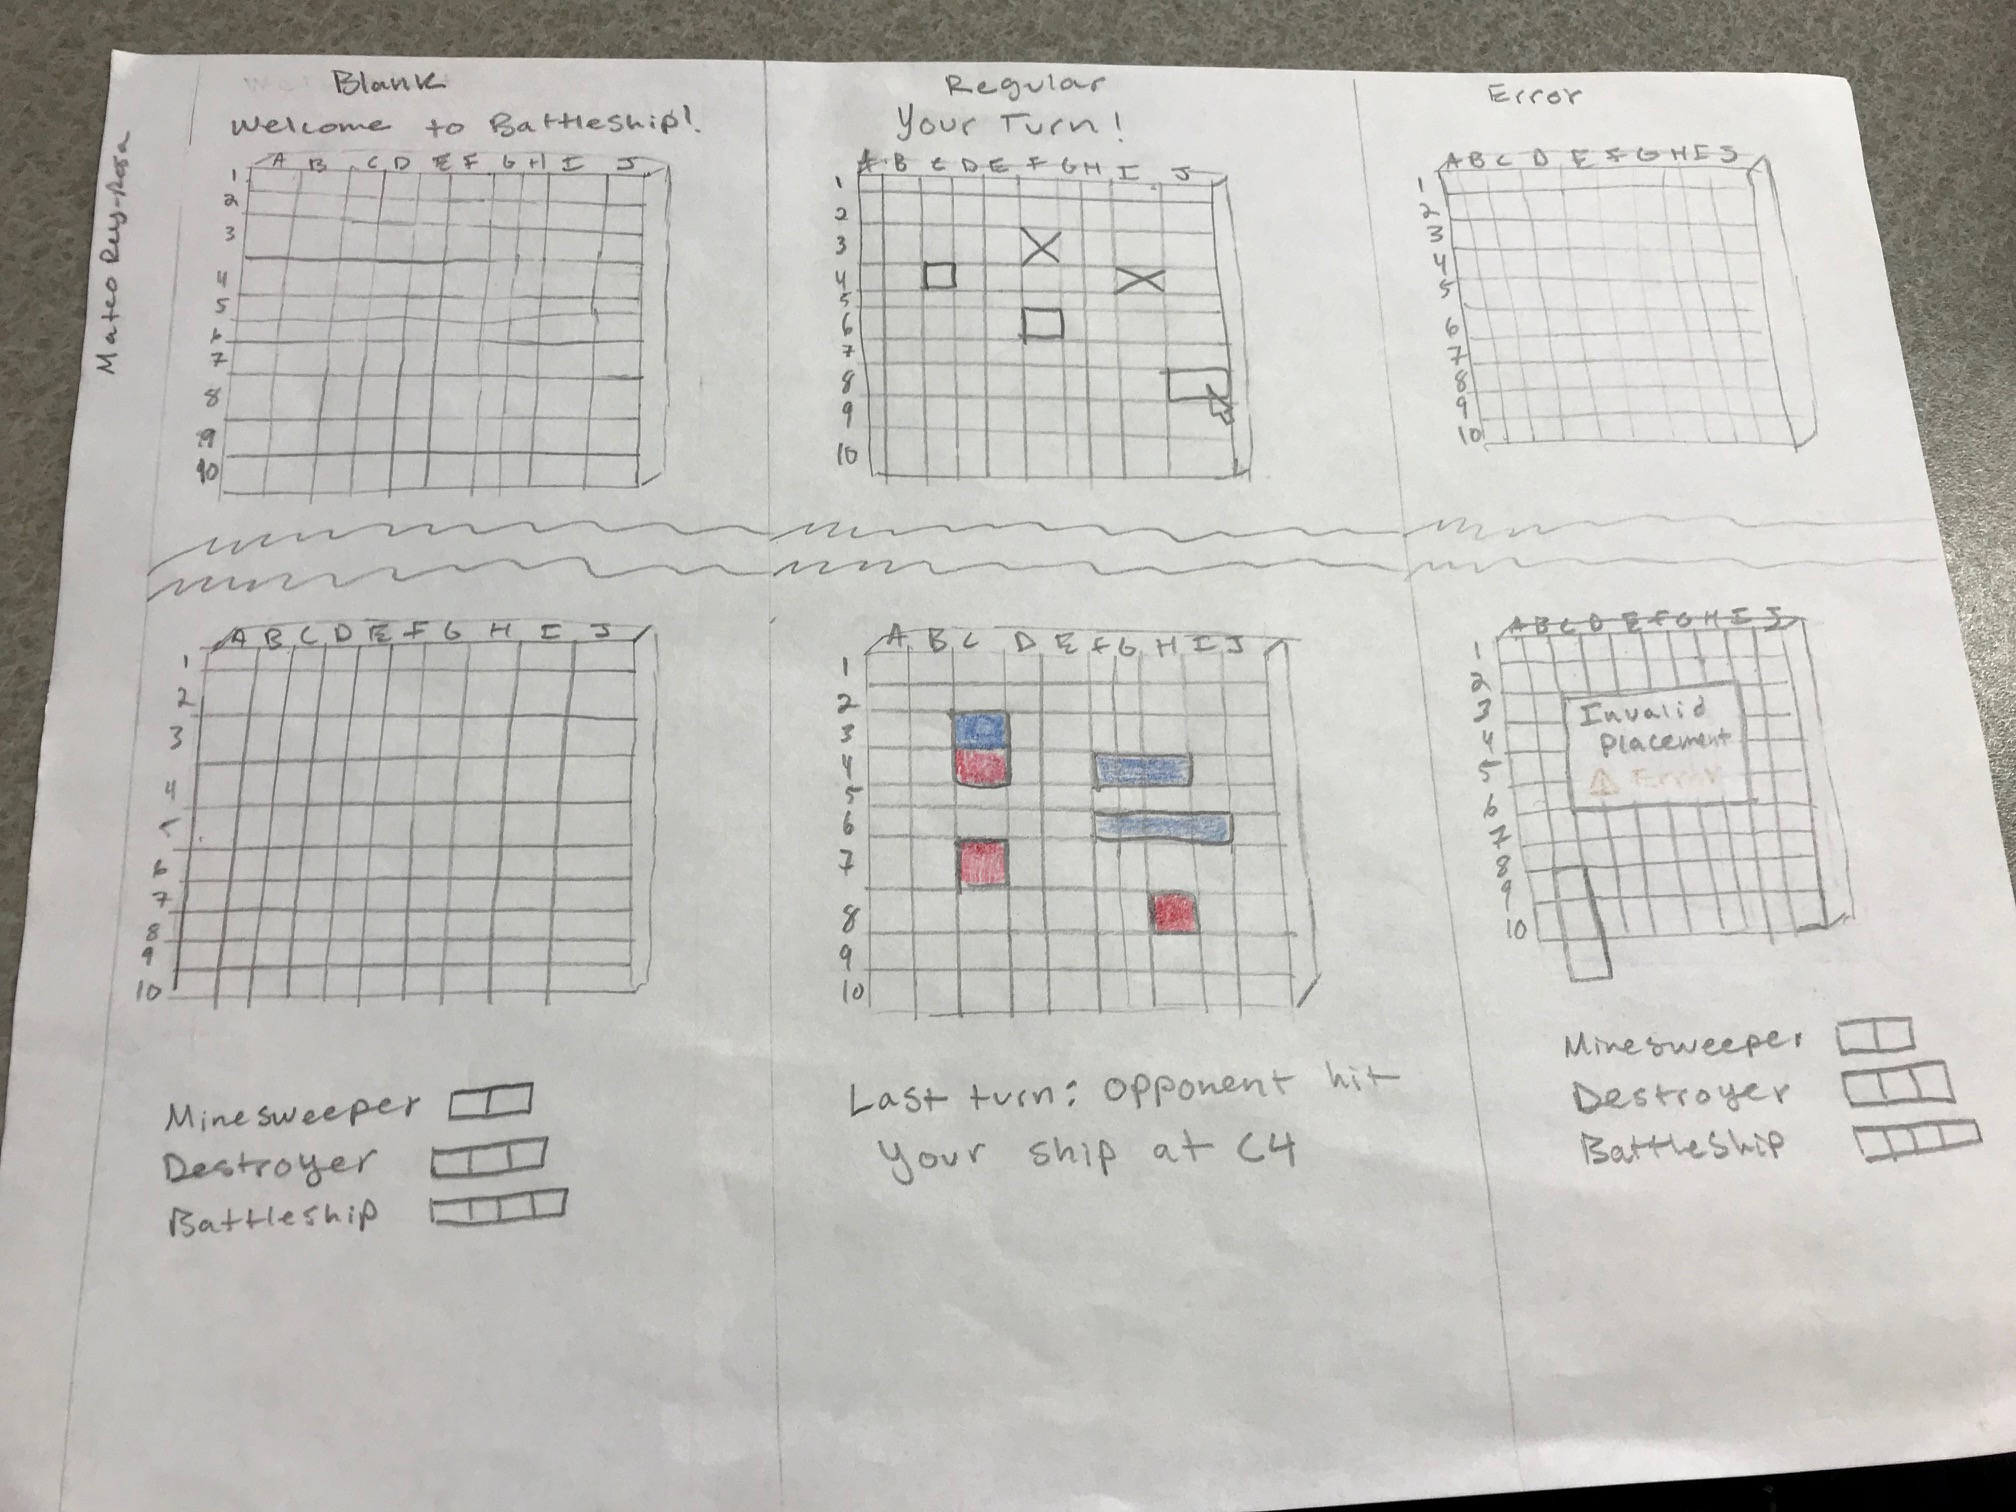 Mateo
Blank
Welcome to Battleship!
A B C D E F G H I J
1
2
3
4
5
6
7
8
9
10
A B C D E F G H I J
1
2
3
4
5
6
7
8
9
10
Minesweeper
Destroyer
Battleship
Regular
Your Turn!
A B C D E F G H I J
1
2
3
4
5
6
7
8
9
10
A B C D E F G H I J
1
2
3
4
5
6
7
8
9
10
Last turn: opponent hit
your ship at C4
Error
A B C D E F G H I J
1
2
3
4
5
6
7
8
9
10
A B C D E F G H I J
1
2
3
4
5
6
7
8
9
10
Invalid
placement
Error
Minesweeper
Destroyer
Battleship